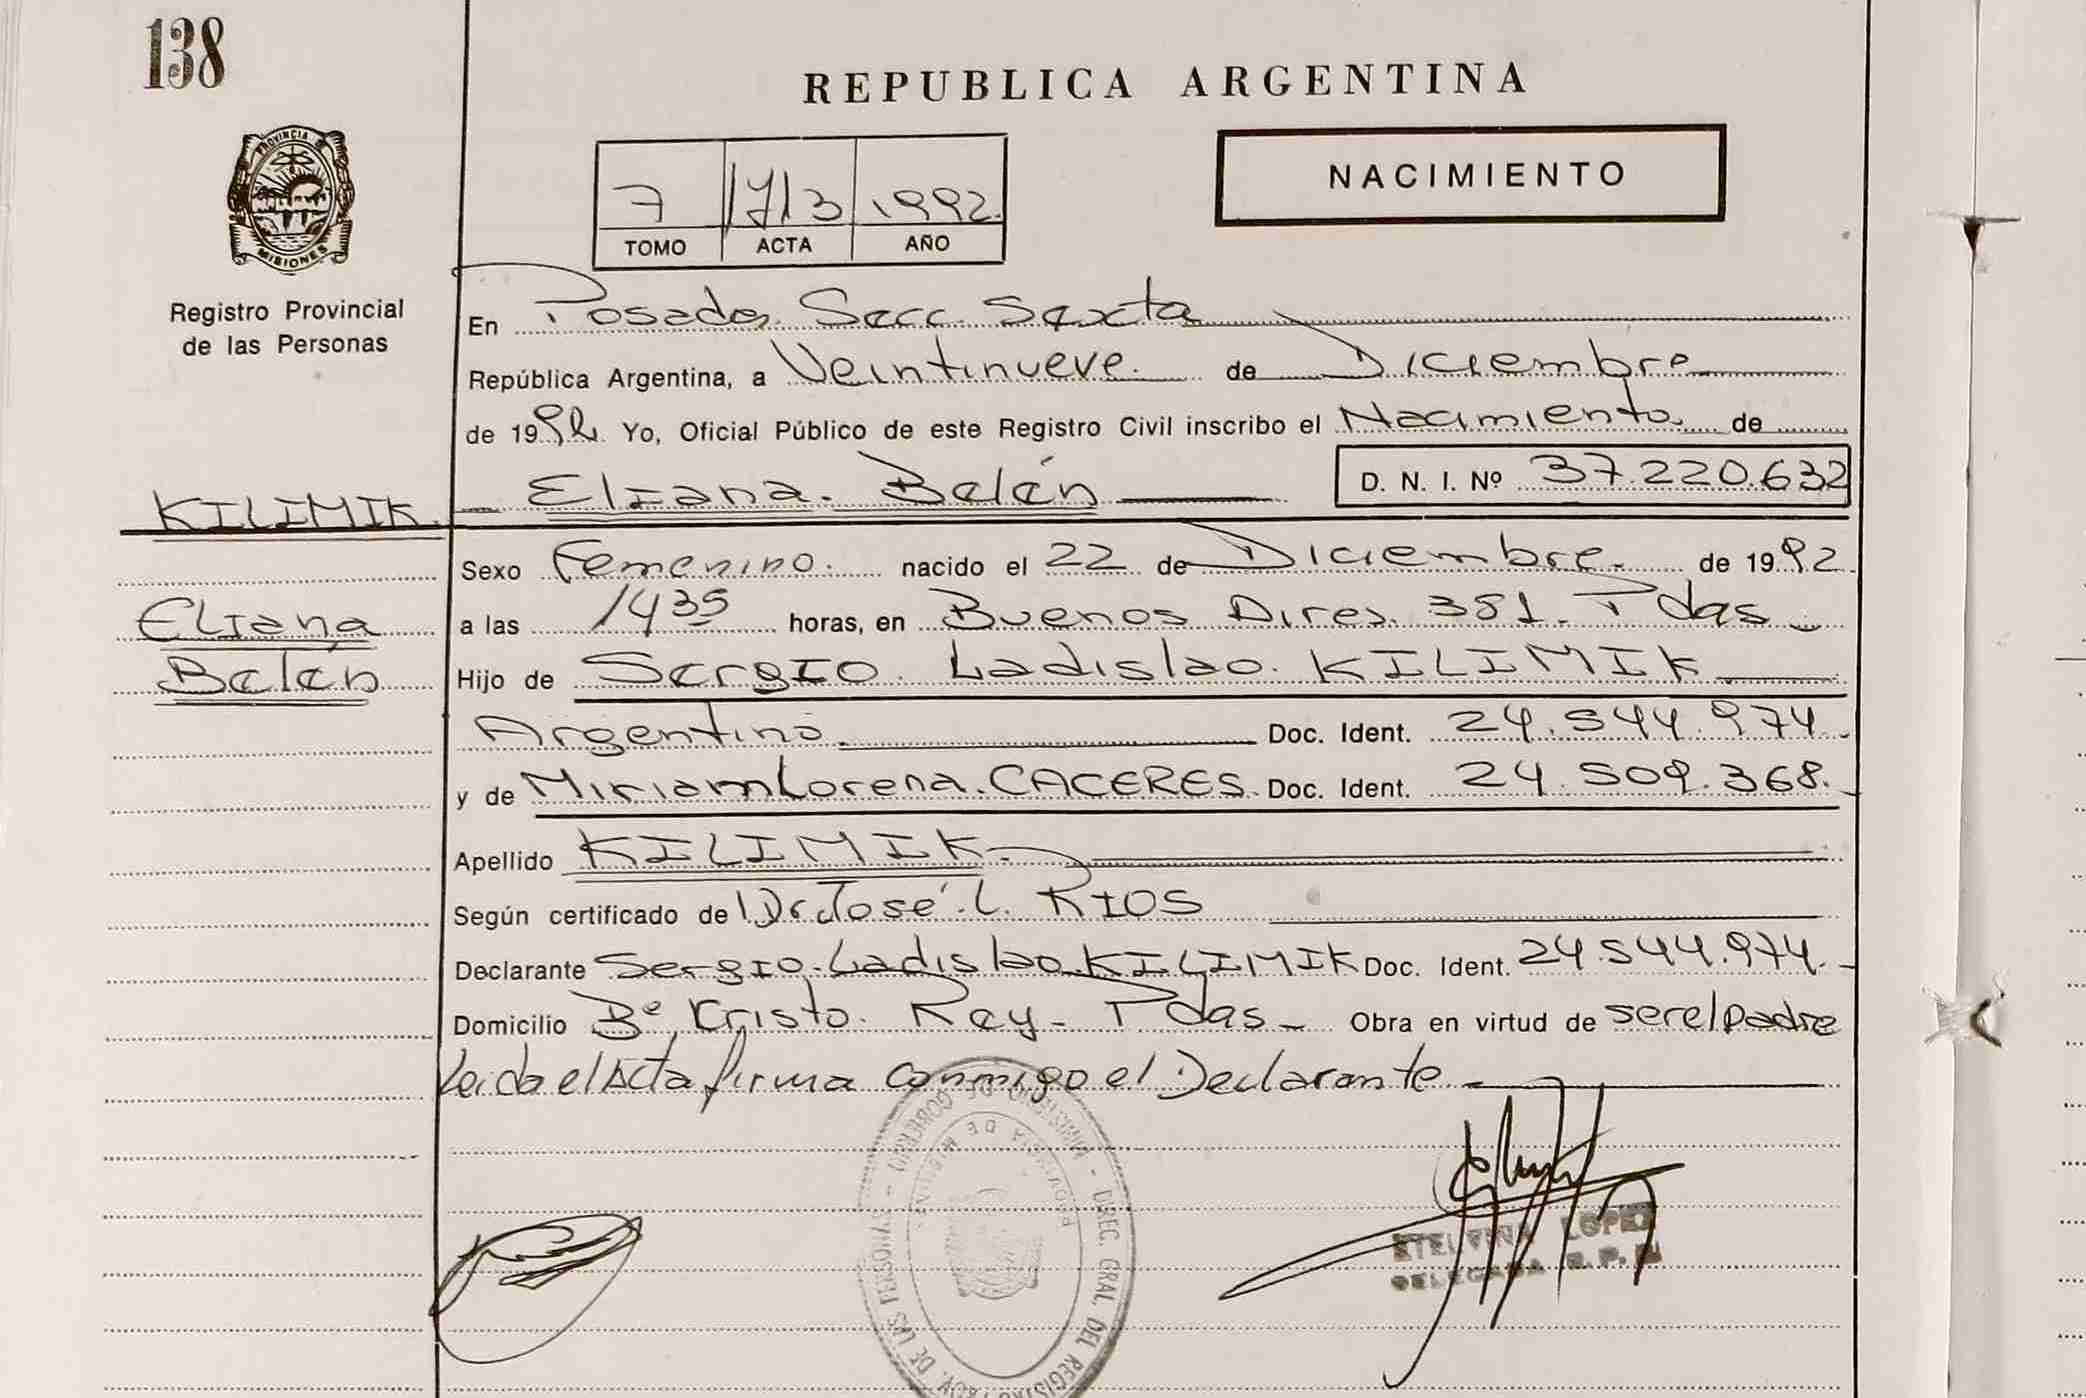 138
REPUBLICA ARGENTINA
PROVINCIA
MISIONES
Registro Provincial
de las Personas
NACIMIENTO
7 1713 1992
TOMO ACTA AÑO
En Posadas Secc. Sexta
República Argentina, a Veintinueve de Diciembre
de 1992 Yo, Oficial Público de este Registro Civil inscribo el Nacimiento de
Eliana Belén D. N. I. Nº 37.220.632
KILIMIK
Eliana
Belén
Sexo Femenino nacido el 22 de Diciembre de 1992
a las 1435 horas, en Buenos Aires 381. Pdas
Hijo de Sergio Ladislao KILIMIK
Argentino Doc. Ident. 24.544.974
y de Miriam Lorena CACERES Doc. Ident. 24.509.368
Apellido KILIMIK
Según certificado de Dr José L. RIOS
Declarante Sergio Ladislao KILIMIK Doc. Ident. 24.544.974
Domicilio Bº Kristo Rey Pdas Obra en virtud de ser el padre
Leida el Acta firma conmigo el Declarante
MINISTERIO DE GOBIERNO - DIREC. GRAL. DEL REGISTRO PROV. DE LAS PERSONAS
PROVINCIA DE MISIONES
ETELVINA LOPEZ
DELEGADA R. P.